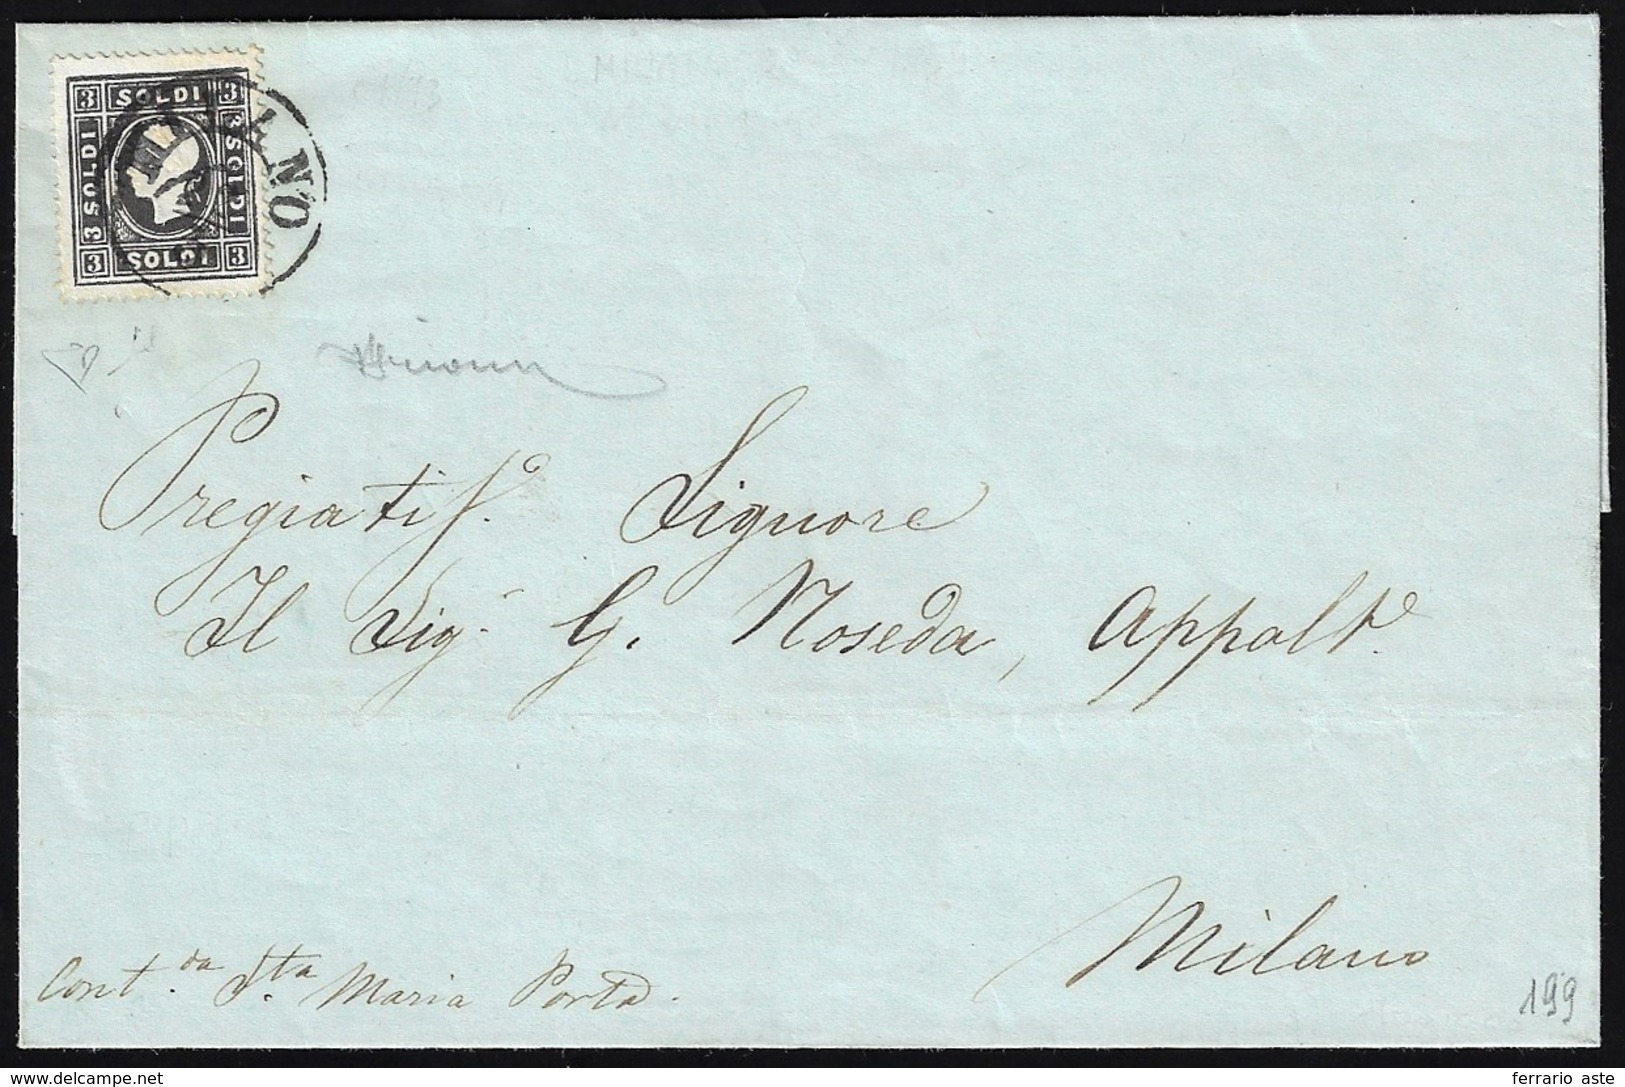 3 SOLDI 3
3 SOLDI
3 SOLDI
3 SOLDI 3
MILANO
Pregiatis. Signore
Il Sig. G. Noseda, Appalt.e
Milano
Cont.da S.ta Maria Porta.
199
delcampe.net
ferrario aste